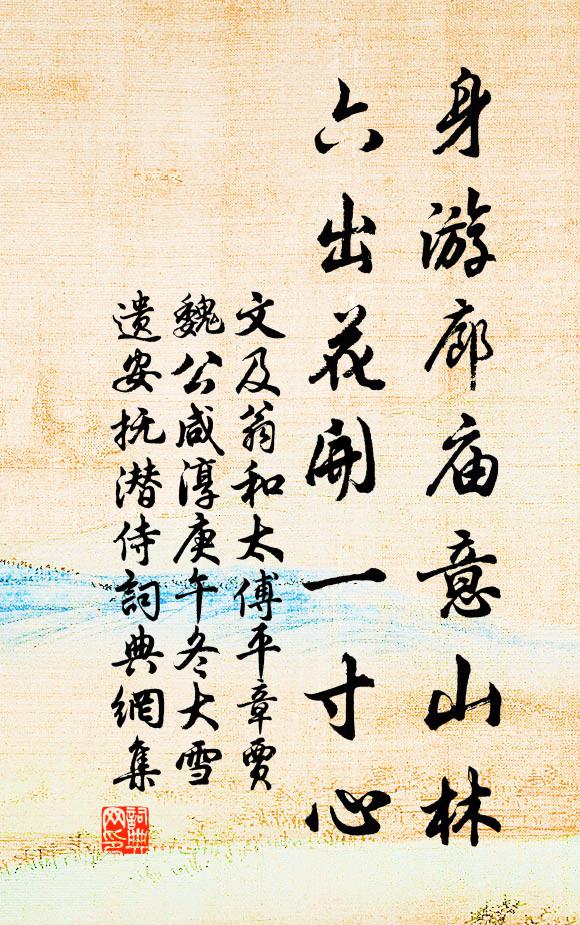 身游廊庙意山林
六出花开一寸心
文及翁和太傅平章贾
魏公咸淳庚午冬大雪
遗安抚潜侍詞典網集
詞典
网印